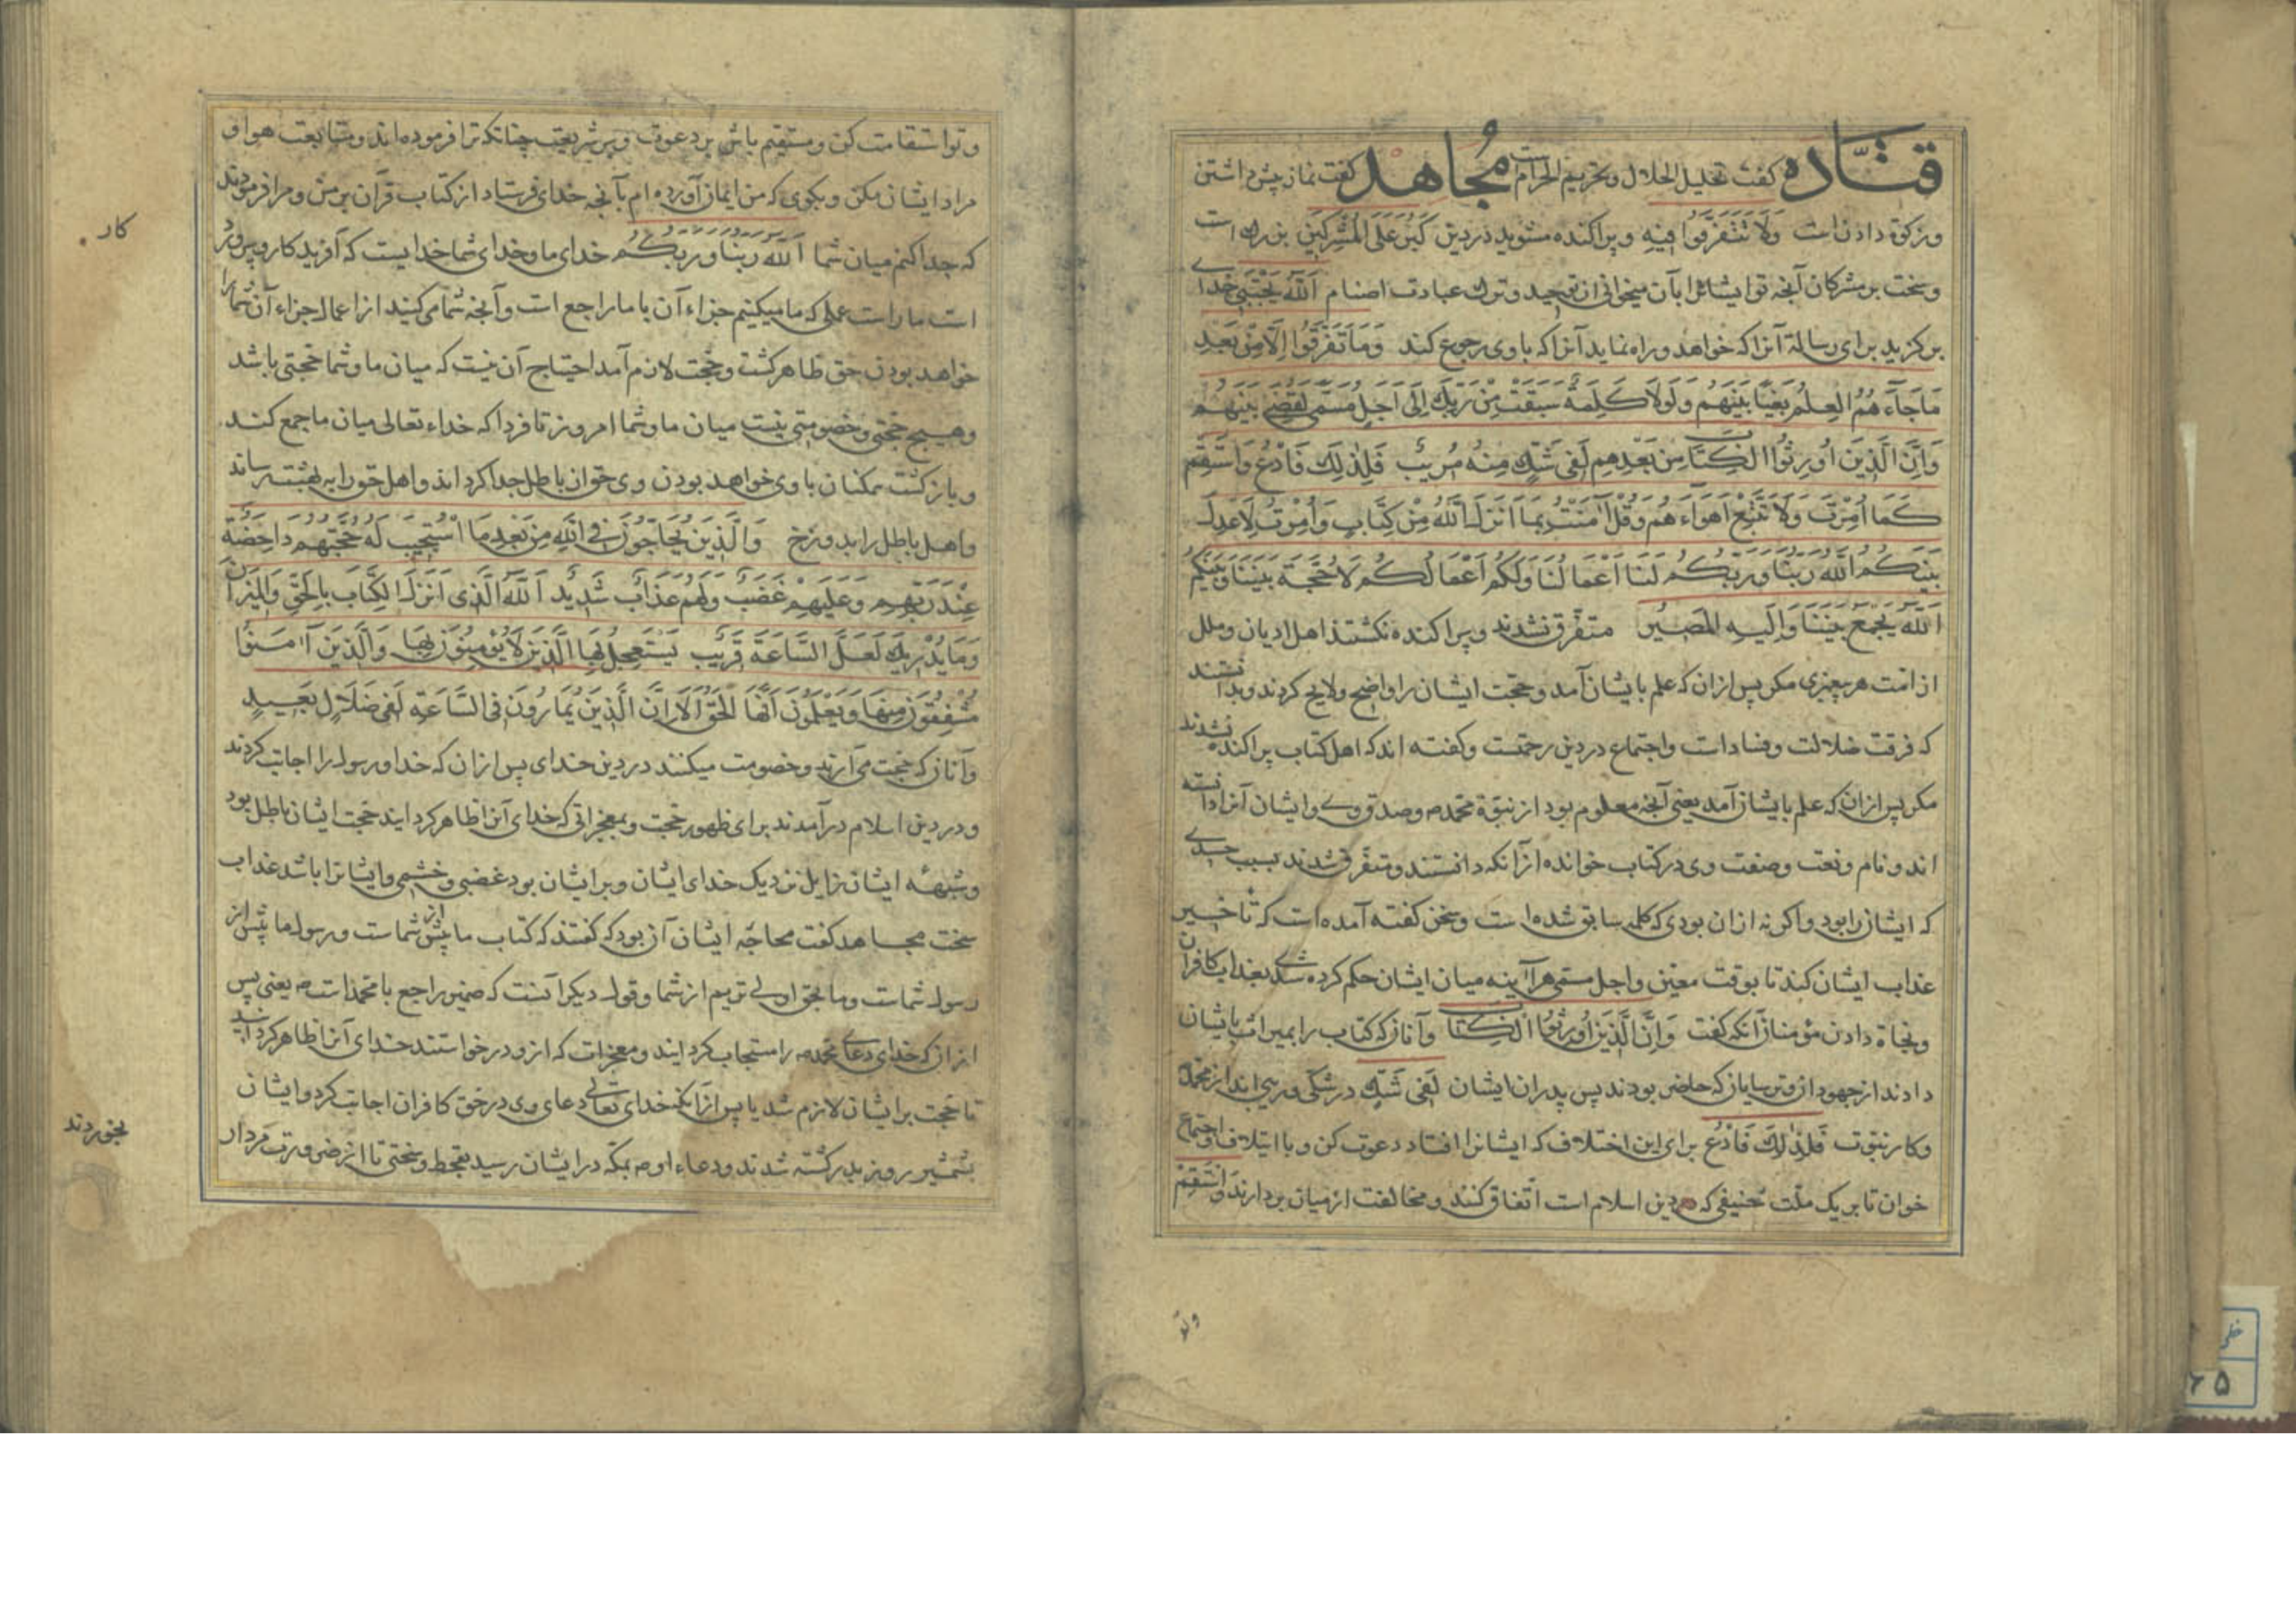 قتاده کفت تحلیل الحلال وتحریم الحرام است مجاهد کفت نماز پیش داشتن
وزکوة دادن است وَلَا تَتَفَرَّقُوا فِيهِ وپراکنده مشوید در دین كَبُرَ عَلَى الْمُشْرِكِينَ بزرك است
وسخت بر مشرکان آنجه تو ایشانرا بآن میخوانی از توحید وترك عبادت اصنام اَللّٰهُ يَجْتَبِي خدای
برکزید برای رسالة آنرا که خواهد وراه نماید آنرا که باوی رجوع کند وَمَا تَفَرَّقُوا اِلَّا مِنْ بَعْدِ
مَا جَآءَهُمُ الْعِلْمُ بَغْيًا بَيْنَهُمْ وَلَوْلَا كَلِمَةٌ سَبَقَتْ مِنْ رَبِّكَ اِلَى اَجَلٍ مُسَمًّى لَقُضِيَ بَيْنَهُمْ
وَاِنَّ الَّذِينَ اُورِثُوا الْكِتَابَ مِنْ بَعْدِهِمْ لَفِي شَكٍّ مِنْهُ مُرِيبٍ فَلِذٰلِكَ فَادْعُ وَاسْتَقِمْ
كَمَا اُمِرْتَ وَلَا تَتَّبِعْ اَهْوَآءَهُمْ وَقُلْ اٰمَنْتُ بِمَا اَنْزَلَ اللّٰهُ مِنْ كِتَابٍ وَاُمِرْتُ لِاَعْدِلَ
بَيْنَكُمُ اَللّٰهُ رَبُّنَا وَرَبُّكُمْ لَنَا اَعْمَالُنَا وَلَكُمْ اَعْمَالُكُمْ لَا حُجَّةَ بَيْنَنَا وَبَيْنَكُمُ
اَللّٰهُ يَجْمَعُ بَيْنَنَا وَاِلَيْهِ الْمَصِيرُ متفرّق نشدند وپراکنده نکشتند اهل ادیان وملل
از امّت هر پیغمبری مکر پس ازان که علم بایشان آمد وحجّت ایشان را واضح ولایح کردند وبدانستند
که فرقت ضلالت وفسادات واجتماع در دین رحمتست وکفته اند که اهل کتاب پراکنده نشدند
مکر پس ازان که علم بایشان آمد یعنی آنجه معلوم بود از نبوّة محمّد ص وصدق وی وایشان آنرا دانسته
اند ونام ونعت وصفت وی در کتاب خوانده ازآنکه دانستند ومتفرّق شدند بسبب حسدی
که ایشان را بود واکر نه ازان بودی که کلمه سابق شده است وسخن کفته آمده است که تأخیر
عذاب ایشان کند تا بوقت معیّن واجل مسمّی هرآینه میان ایشان حکم کرده شدی بعذاب کافران
ونجاة دادن مؤمنان آنکه کفت وَاِنَّ الَّذِينَ اُورِثُوا الْكِتَابَ وآنان که کتاب را بمیراث بایشان
دادند از جهودان وترسایان که حاضر بودند پس پدران ایشان لَفِي شَكٍّ در شکّی وریبی اند از محمّد
وکار نبوّت فَلِذٰلِكَ فَادْعُ برای این اختلاف که ایشانرا افتاد دعوت کن وبا ایتلاف واجتماع
خوان تا بر یک ملّت حنیفی که دین اسلام است اتّفاق کنند ومخالفت از میان بردارند وَاسْتَقِمْ
وتو
وتو استقامت کن ومستقیم باش بر دعوت وبر شریعت چنانکه ترا فرموده اند ومتابعت هوا و
مراد ایشان مکن وبکوی که من ایمان آورده ام بآنجه خدای فرستاد از کتاب قرآن بر من ومرا فرمودند
که جدا کنم میان شما اَللّٰهُ رَبُّنَا وَرَبُّكُمْ خدای ما وخدای شما خدایست که آفریدکار وپرورد
کار
است ما راست عملی که ما میکنیم جزاء آن با ما راجع است وآنجه شما میکنید از اعمال جزاء آن شما را
خواهد بودن حق ظاهر کشت وحجّت لازم آمد احتیاج آن نیست که میان ما وشما حجّتی باشد
وهیچ حجّتی وخصومتی نیست میان ما وشما امروز تا فردا که خداء تعالی میان ما جمع کند
وبازکشت همکنان باوی خواهد بودن وی حق از باطل جدا کرداند واهل حق را به بهشت رساند
واهل باطل را بدوزخ وَالَّذِينَ يُحَاجُّونَ فِي اللّٰهِ مِنْ بَعْدِ مَا اسْتُجِيبَ لَهُ حُجَّتُهُمْ دَاحِضَةٌ
عِنْدَ رَبِّهِمْ وَعَلَيْهِمْ غَضَبٌ وَلَهُمْ عَذَابٌ شَدِيدٌ اَللّٰهُ الَّذِي اَنْزَلَ الْكِتَابَ بِالْحَقِّ وَالْمِيزَانَ
وَمَا يُدْرِيكَ لَعَلَّ السَّاعَةَ قَرِيبٌ يَسْتَعْجِلُ بِهَا الَّذِينَ لَا يُؤْمِنُونَ بِهَا وَالَّذِينَ اٰمَنُوا
مُشْفِقُونَ مِنْهَا وَيَعْلَمُونَ اَنَّهَا الْحَقُّ اَلَا اِنَّ الَّذِينَ يُمَارُونَ فِي السَّاعَةِ لَفِي ضَلَالٍ بَعِيدٍ
وآنان که حجّت می آرند وخصومت میکنند در دین خدای پس ازان که خدا ورسول را اجابت کردند
ودر دین اسلام درآمدند برای ظهور حجّت وبمعجزاتی که خدای آنرا ظاهر کردایند حجّت ایشان باطل بود
وشبهۀ ایشان زایل نزدیک خدای ایشان وبر ایشان بود غضبی وخشمی وایشانرا باشد عذاب
سخت مجاهد کفت محاجّه ایشان آن بود که کفتند که کتاب ما پیش از شماست ورسول ما پیش از
رسول شماست وما بحق اولی تریم از شما وقول دیکر آنست که ضمیر راجع با محمّدست ص یعنی پس
ازان که خدای دعای محمّد ص را مستجاب کردایند ومعجزات که ازو درخواستند خدای آنرا ظاهر کردانید
تا حجّت بر ایشان لازم شد یا پس ازآنکه خدای تعالی دعای وی در حق کافران اجابت کرد وایشان
بشمشیر روز بدر کشته شدند ودعاء او ص بمکّه در ایشان رسید بقحط وسختی تا از ضرورت مردار
بخوردند
۶۵